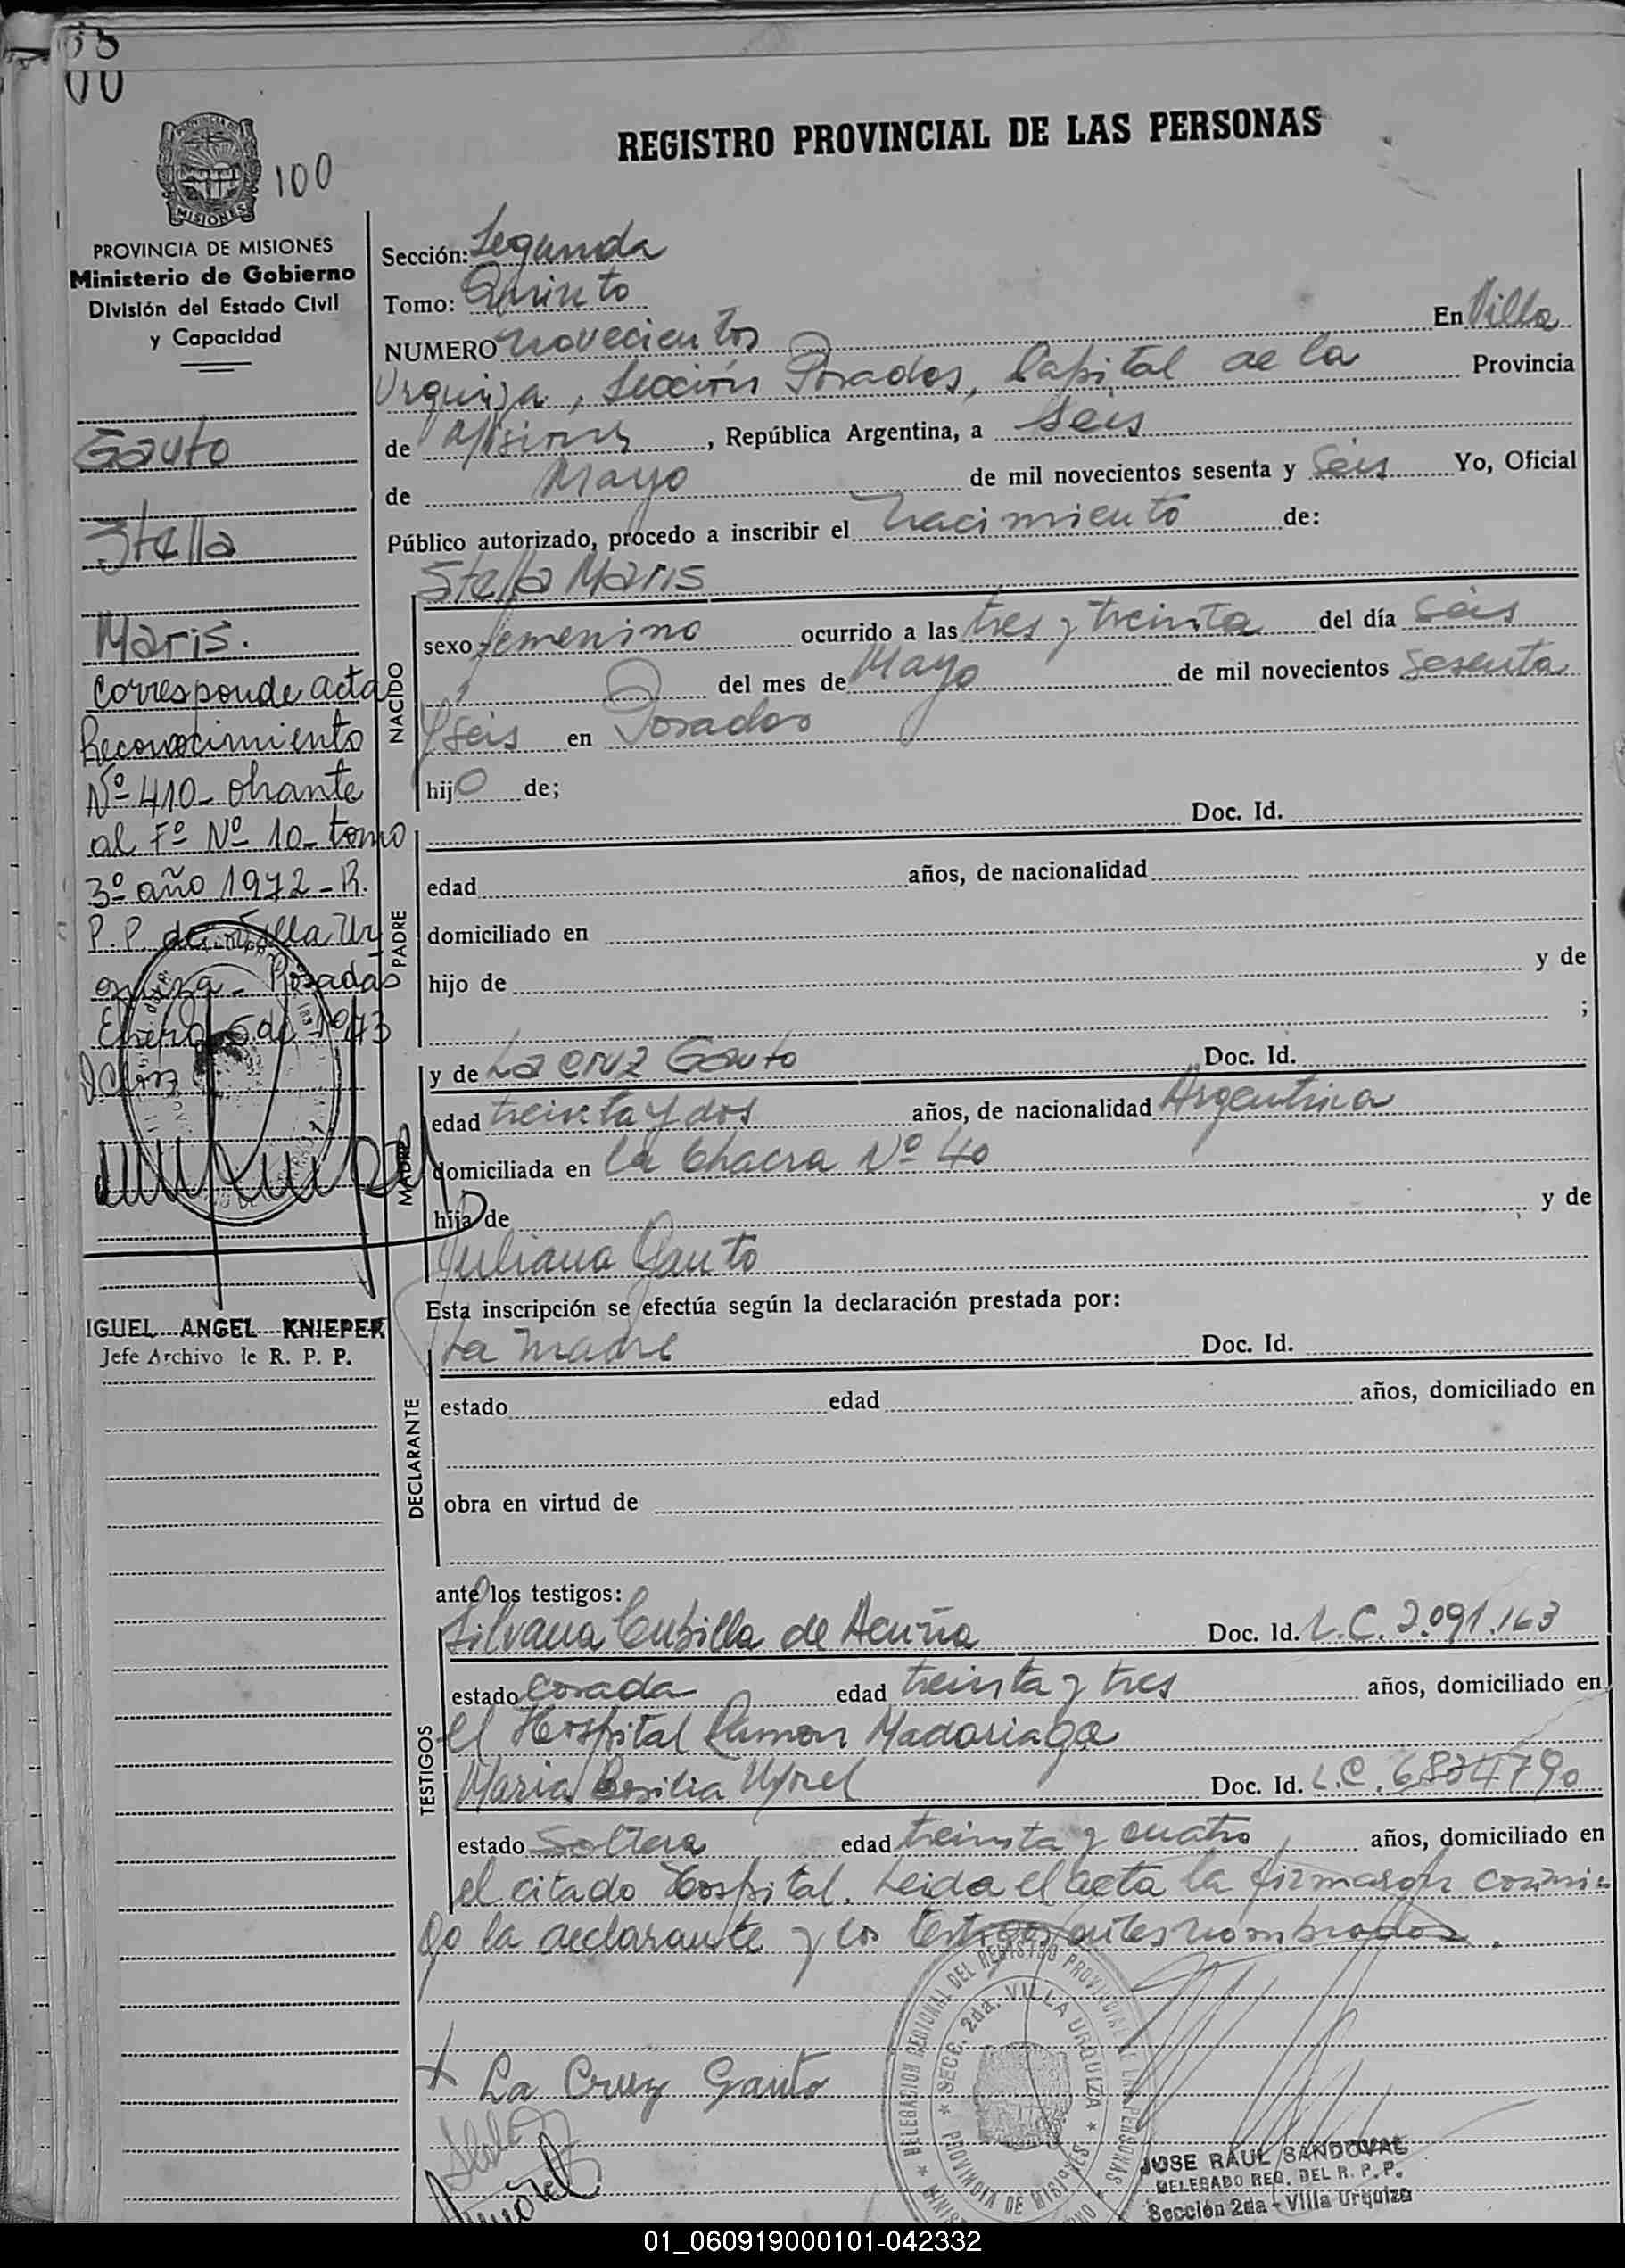 00
100
REGISTRO PROVINCIAL DE LAS PERSONAS
MISIONES
PROVINCIA DE MISIONES
Ministerio de Gobierno
División del Estado Civil
y Capacidad
Gauto
Stella
Maris.
Corresponde acta
Reconocimiento
Nº 410- obrante
al Fº Nº 10- tomo
3º año 1972- R.
P. P. de Villa Ur
quiza- Posadas
Enero 5 de 1973
IGUEL ANGEL KNIEPER
Jefe Archivo le R. P. P.
Sección: Segunda
Tomo: Quinto
NUMERO novecientos En Villa
Urquiza, Sección Posadas, Capital de la Provincia
de Misiones, República Argentina, a Seis
de Mayo de mil novecientos sesenta y Seis Yo, Oficial
Público autorizado, procedo a inscribir el nacimiento de:
Stella Maris
NACIDO
sexo femenino ocurrido a las tres y treinta del día seis
del mes de Mayo de mil novecientos sesenta
y seis en Posadas
hijo de;
PADRE
Doc. Id.
edad años, de nacionalidad
domiciliado en
hijo de y de
;
MADRE
y de La Cruz Gauto Doc. Id.
edad treinta y dos años, de nacionalidad Argentina
domiciliada en la Chacra Nº 40
hija de y de
Juliana Gauto
Esta inscripción se efectúa según la declaración prestada por:
DECLARANTE
La madre Doc. Id.
estado edad años, domiciliado en
obra en virtud de
ante los testigos:
TESTIGOS
Silvana Cubilla de Acuña Doc. Id. L.C. 2.091.163
estado casada edad treinta y tres años, domiciliado en
el Hospital Ramon Madariaga
Maria Doc. Id. L.C. 6804790
estado Soltera edad treinta y cuatro años, domiciliado en
el citado Hospital. Leida el acta la firmaron conmi-
go la declarante y los testigos antes nombrados.
x La Cruz Gauto
DELEGACION REGIONAL DEL REGISTRO PROVINCIAL DE LAS PERSONAS
SECC. 2da. VILLA URQUIZA
PROVINCIA DE MISIONES
JOSE RAUL SANDOVAL
DELEGADO REG. DEL R. P. P.
Sección 2da - Villa Urquiza
01_060919000101-042332